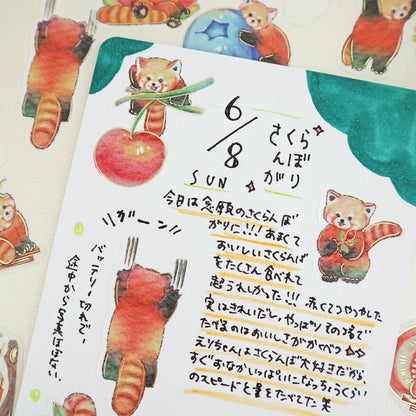 6/8
SUN
さくら
んぼ
がり
今日は念願のさくらんぼ
がりに!!! あまくて
おいしいさくらんぼ
をたくさん食べれて
超うれしかった!!! 赤くてつやつやした
実はきれいだし、やっぱりその場で
たべるのはおいしさがかくべつ
えりちゃんはさくらんぼ大好きだから、
すぐおなかいっぱいになっちゃうくらい
のスピードと量をたべてた 笑
ガーン
バッテリー切れで…
途中から写真はほぼない。